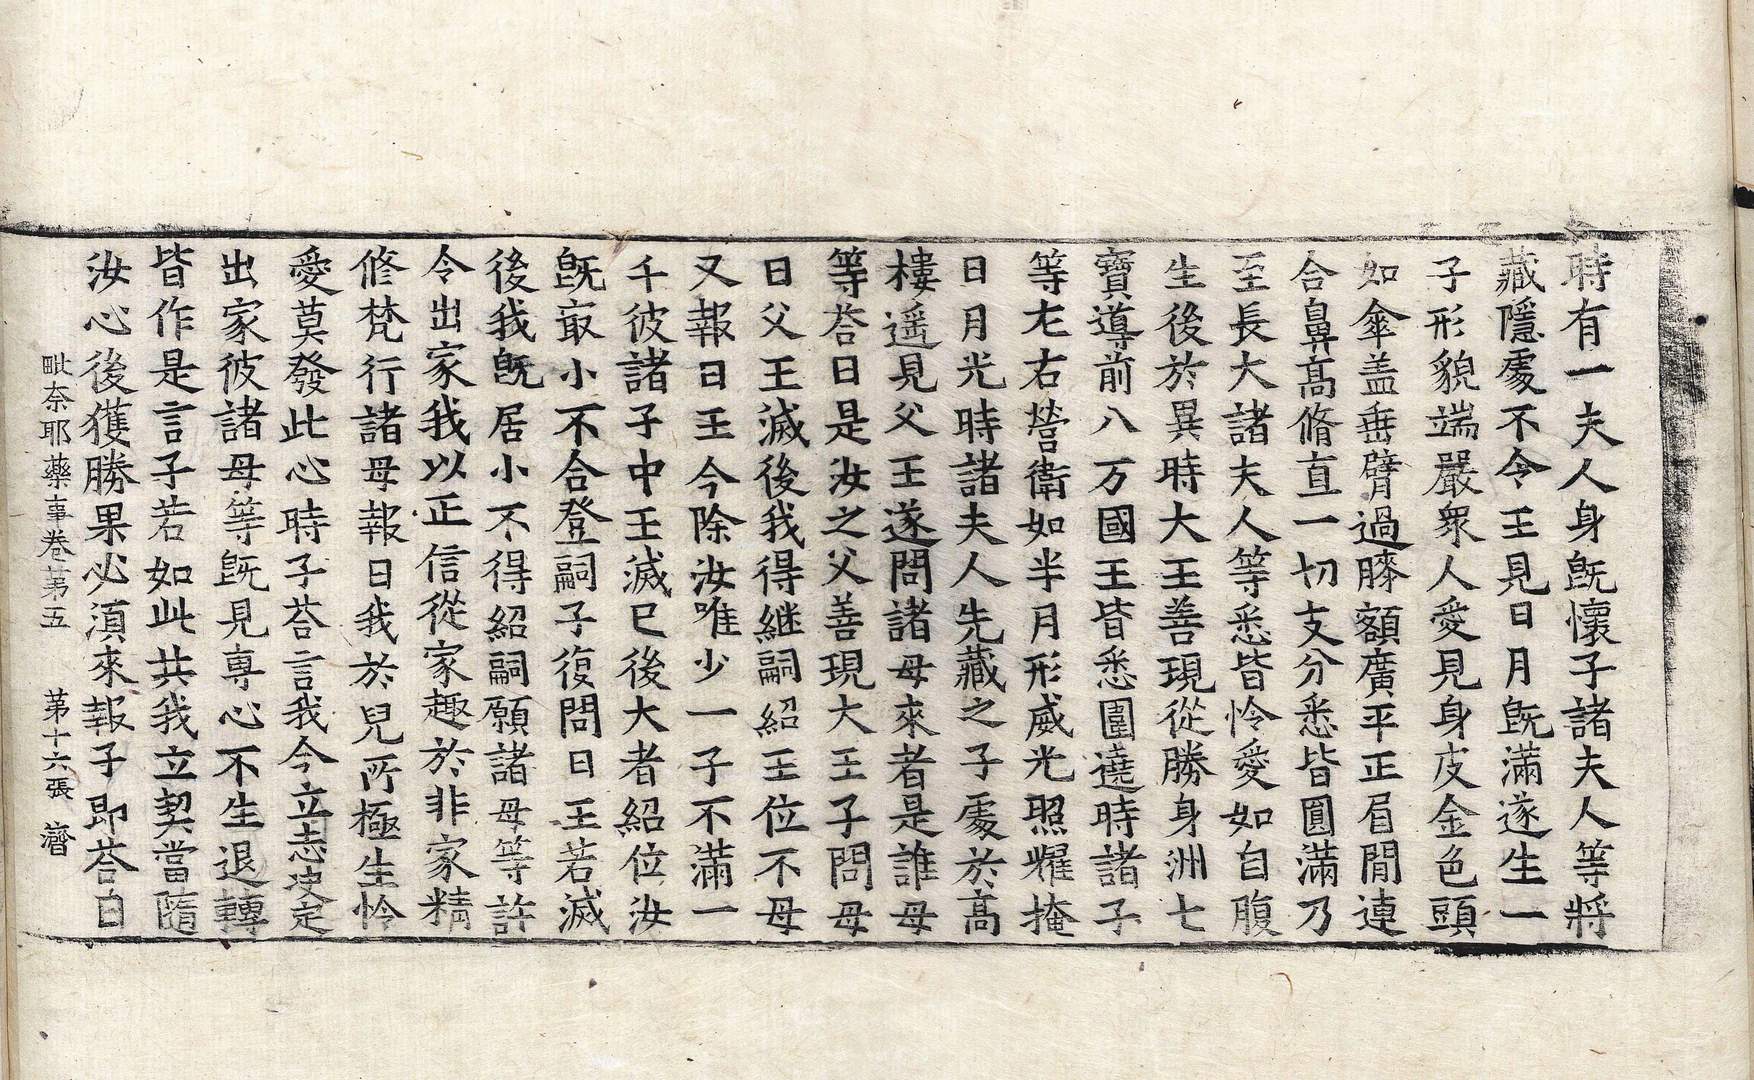 時有一夫人身旣懷子諸夫人等將
藏隱處不令王見日月旣滿遂生一
子形貌端嚴衆人愛見身皮金色頭
如傘盖垂臂過膝額廣平正眉間連
合鼻高脩直一切支分悉皆圓滿乃
至長大諸夫人等悉皆怜愛如自腹
生後於異時大王善現從勝身洲七
寶導前八万國王皆悉圍遶時諸子
等左右營衛如半月形威光照耀掩
日月光時諸夫人先藏之子處於高
樓遥見父王遂問諸母來者是誰母
等荅曰是汝之父善現大王子問母
曰父王滅後我得継嗣紹王位不母
又報曰王今除汝唯少一子不滿一
千彼諸子中王滅已後大者紹位汝
旣㝡小不合登嗣子復問曰王若滅
後我旣居小不得紹嗣願諸母等許
令出家我以正信從家趣於非家精
修梵行諸母報曰我於兒所極生怜
愛莫發此心時子荅言我今立志决定
出家彼諸母等旣見專心不生退轉
皆作是言子若如此共我立契當隨
汝心後獲勝果必湏來報子即荅曰
毗奈耶藥事卷第五 第十六張 濟